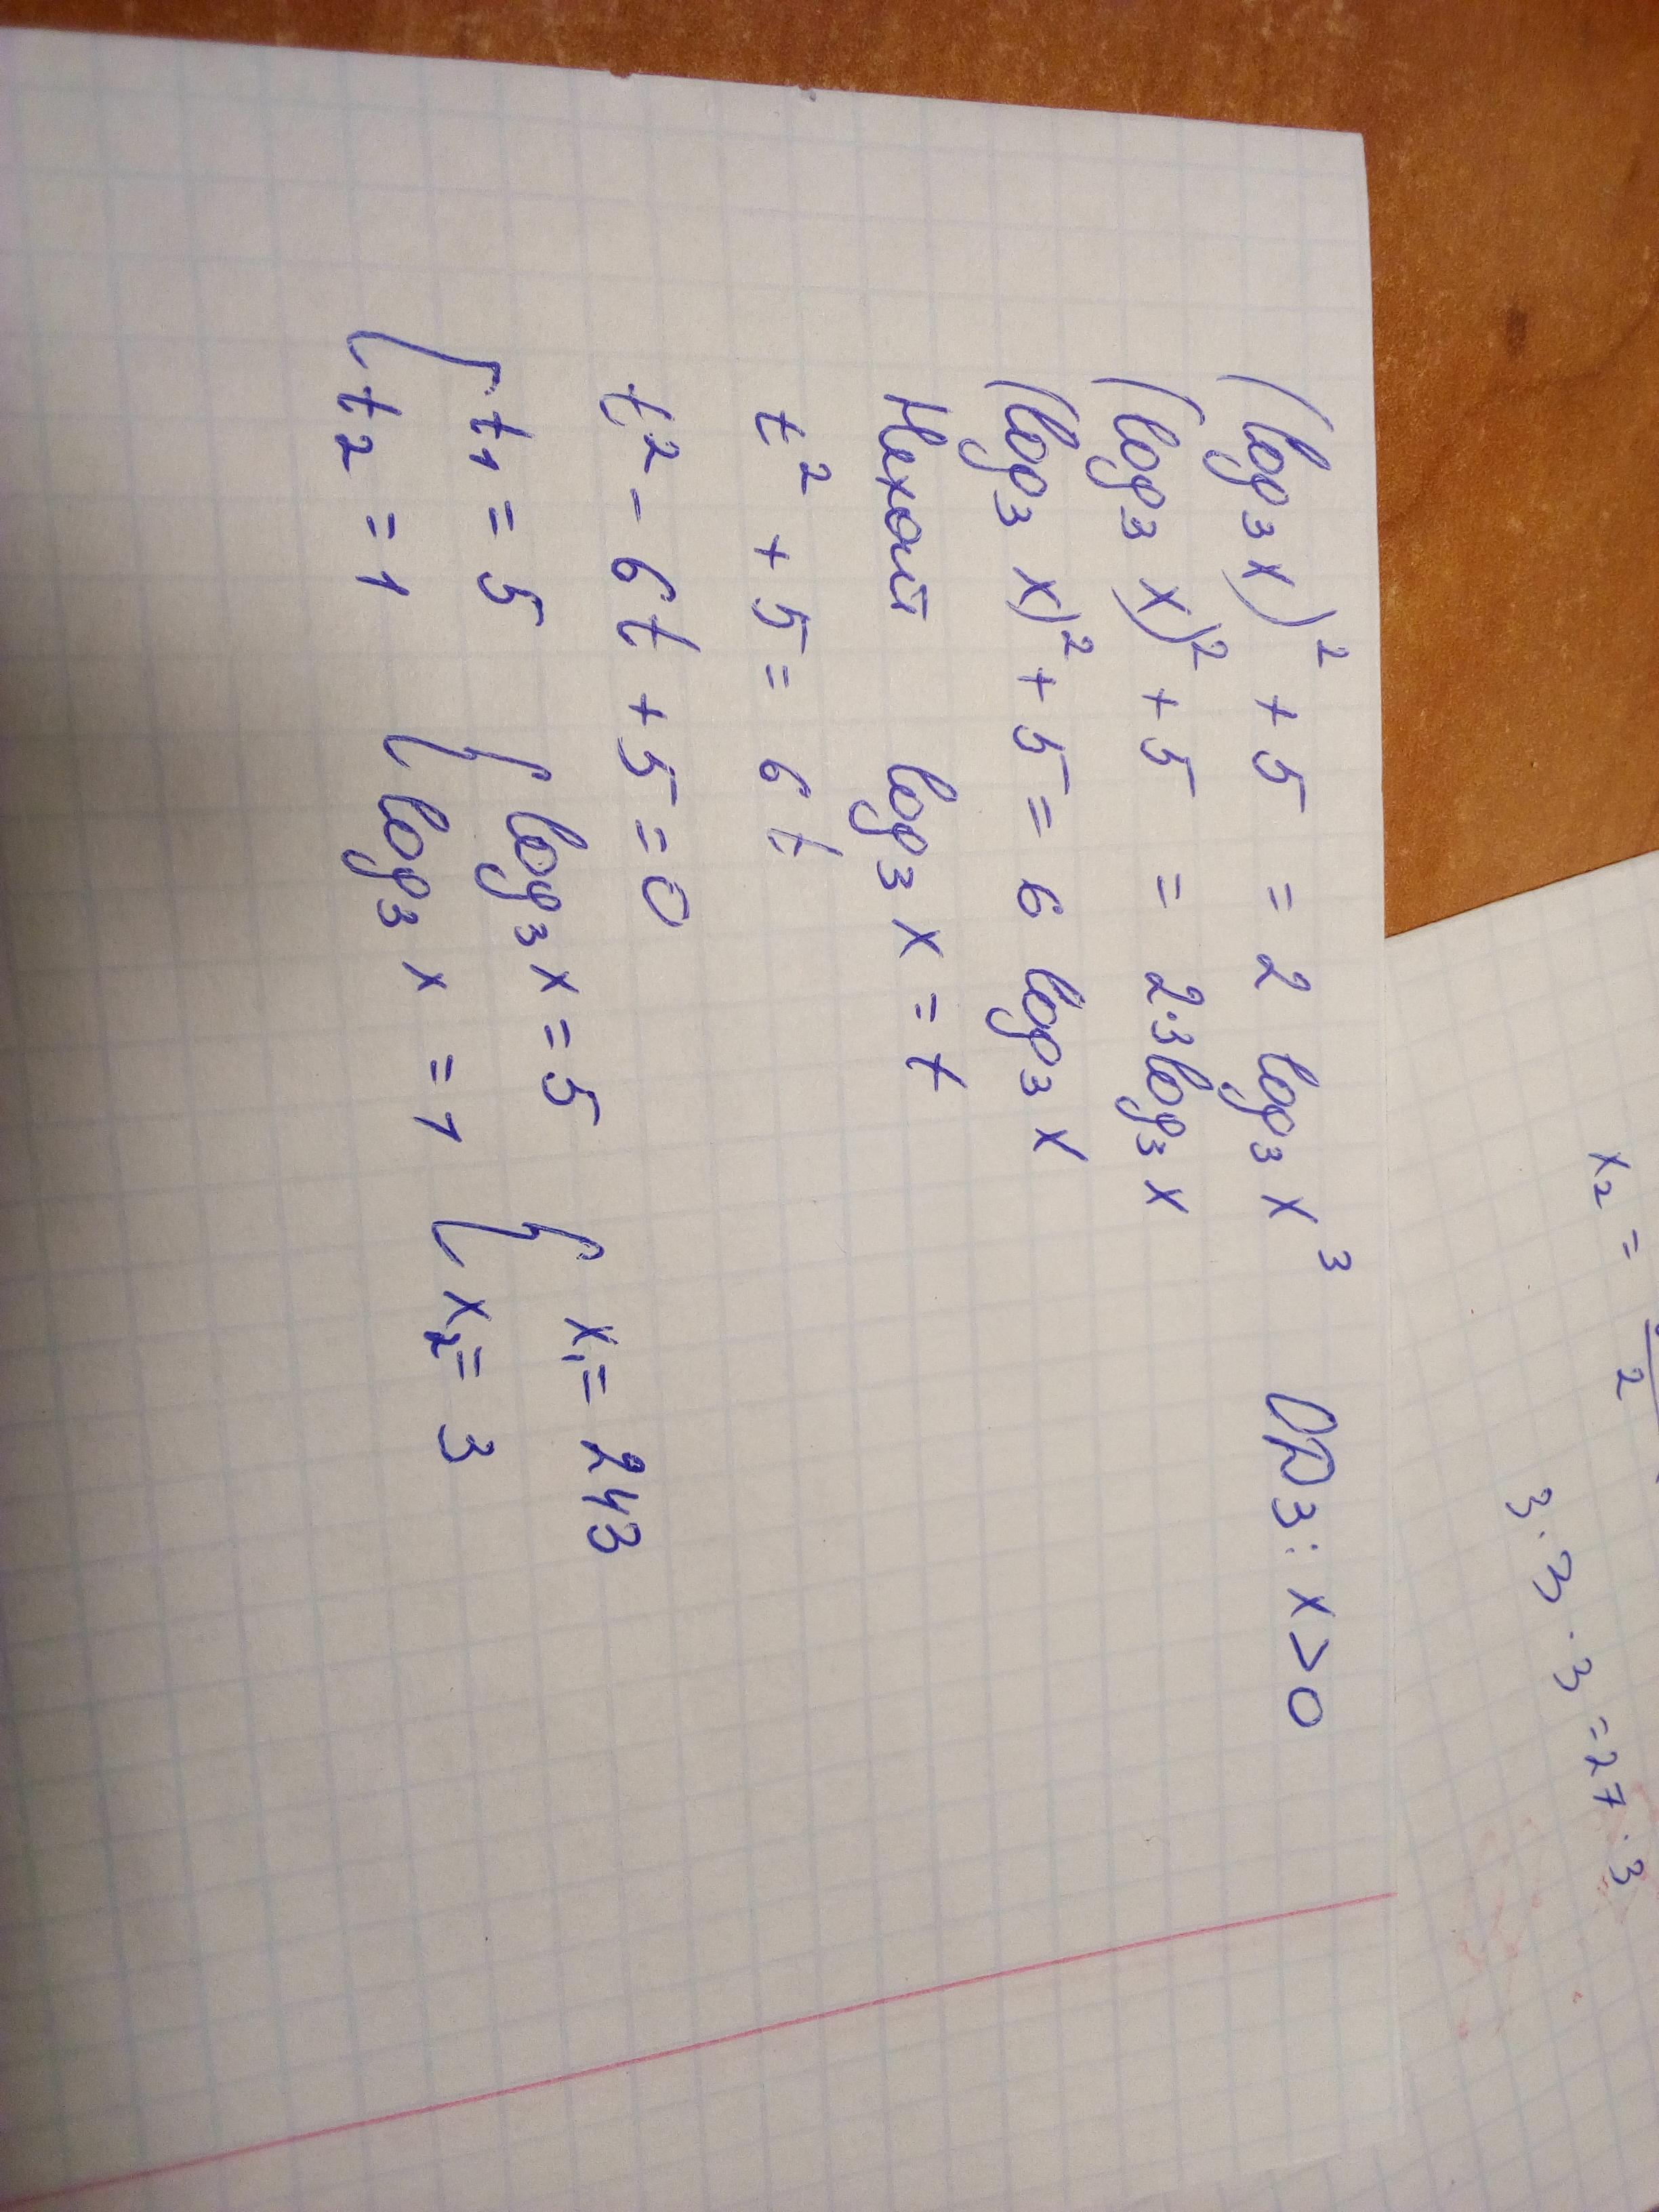 (log₃ x)² + 5 = 2 log₃ x³ ОДЗ: x>0
(log₃ x)² + 5 = 2·3log₃ x
(log₃ x)² + 5 = 6 log₃ x
Нехай log₃ x = t
t² + 5 = 6 t
t² - 6t + 5 = 0
[ t₁ = 5 { log₃ x = 5 { x₁ = 243
[ t₂ = 1 { log₃ x = 1 { x₂ = 3
x₂ =
2
3·3·3 = 27·3